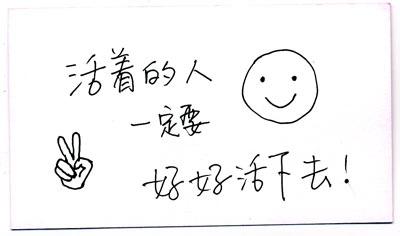 活着的人
一定要
好好活下去！